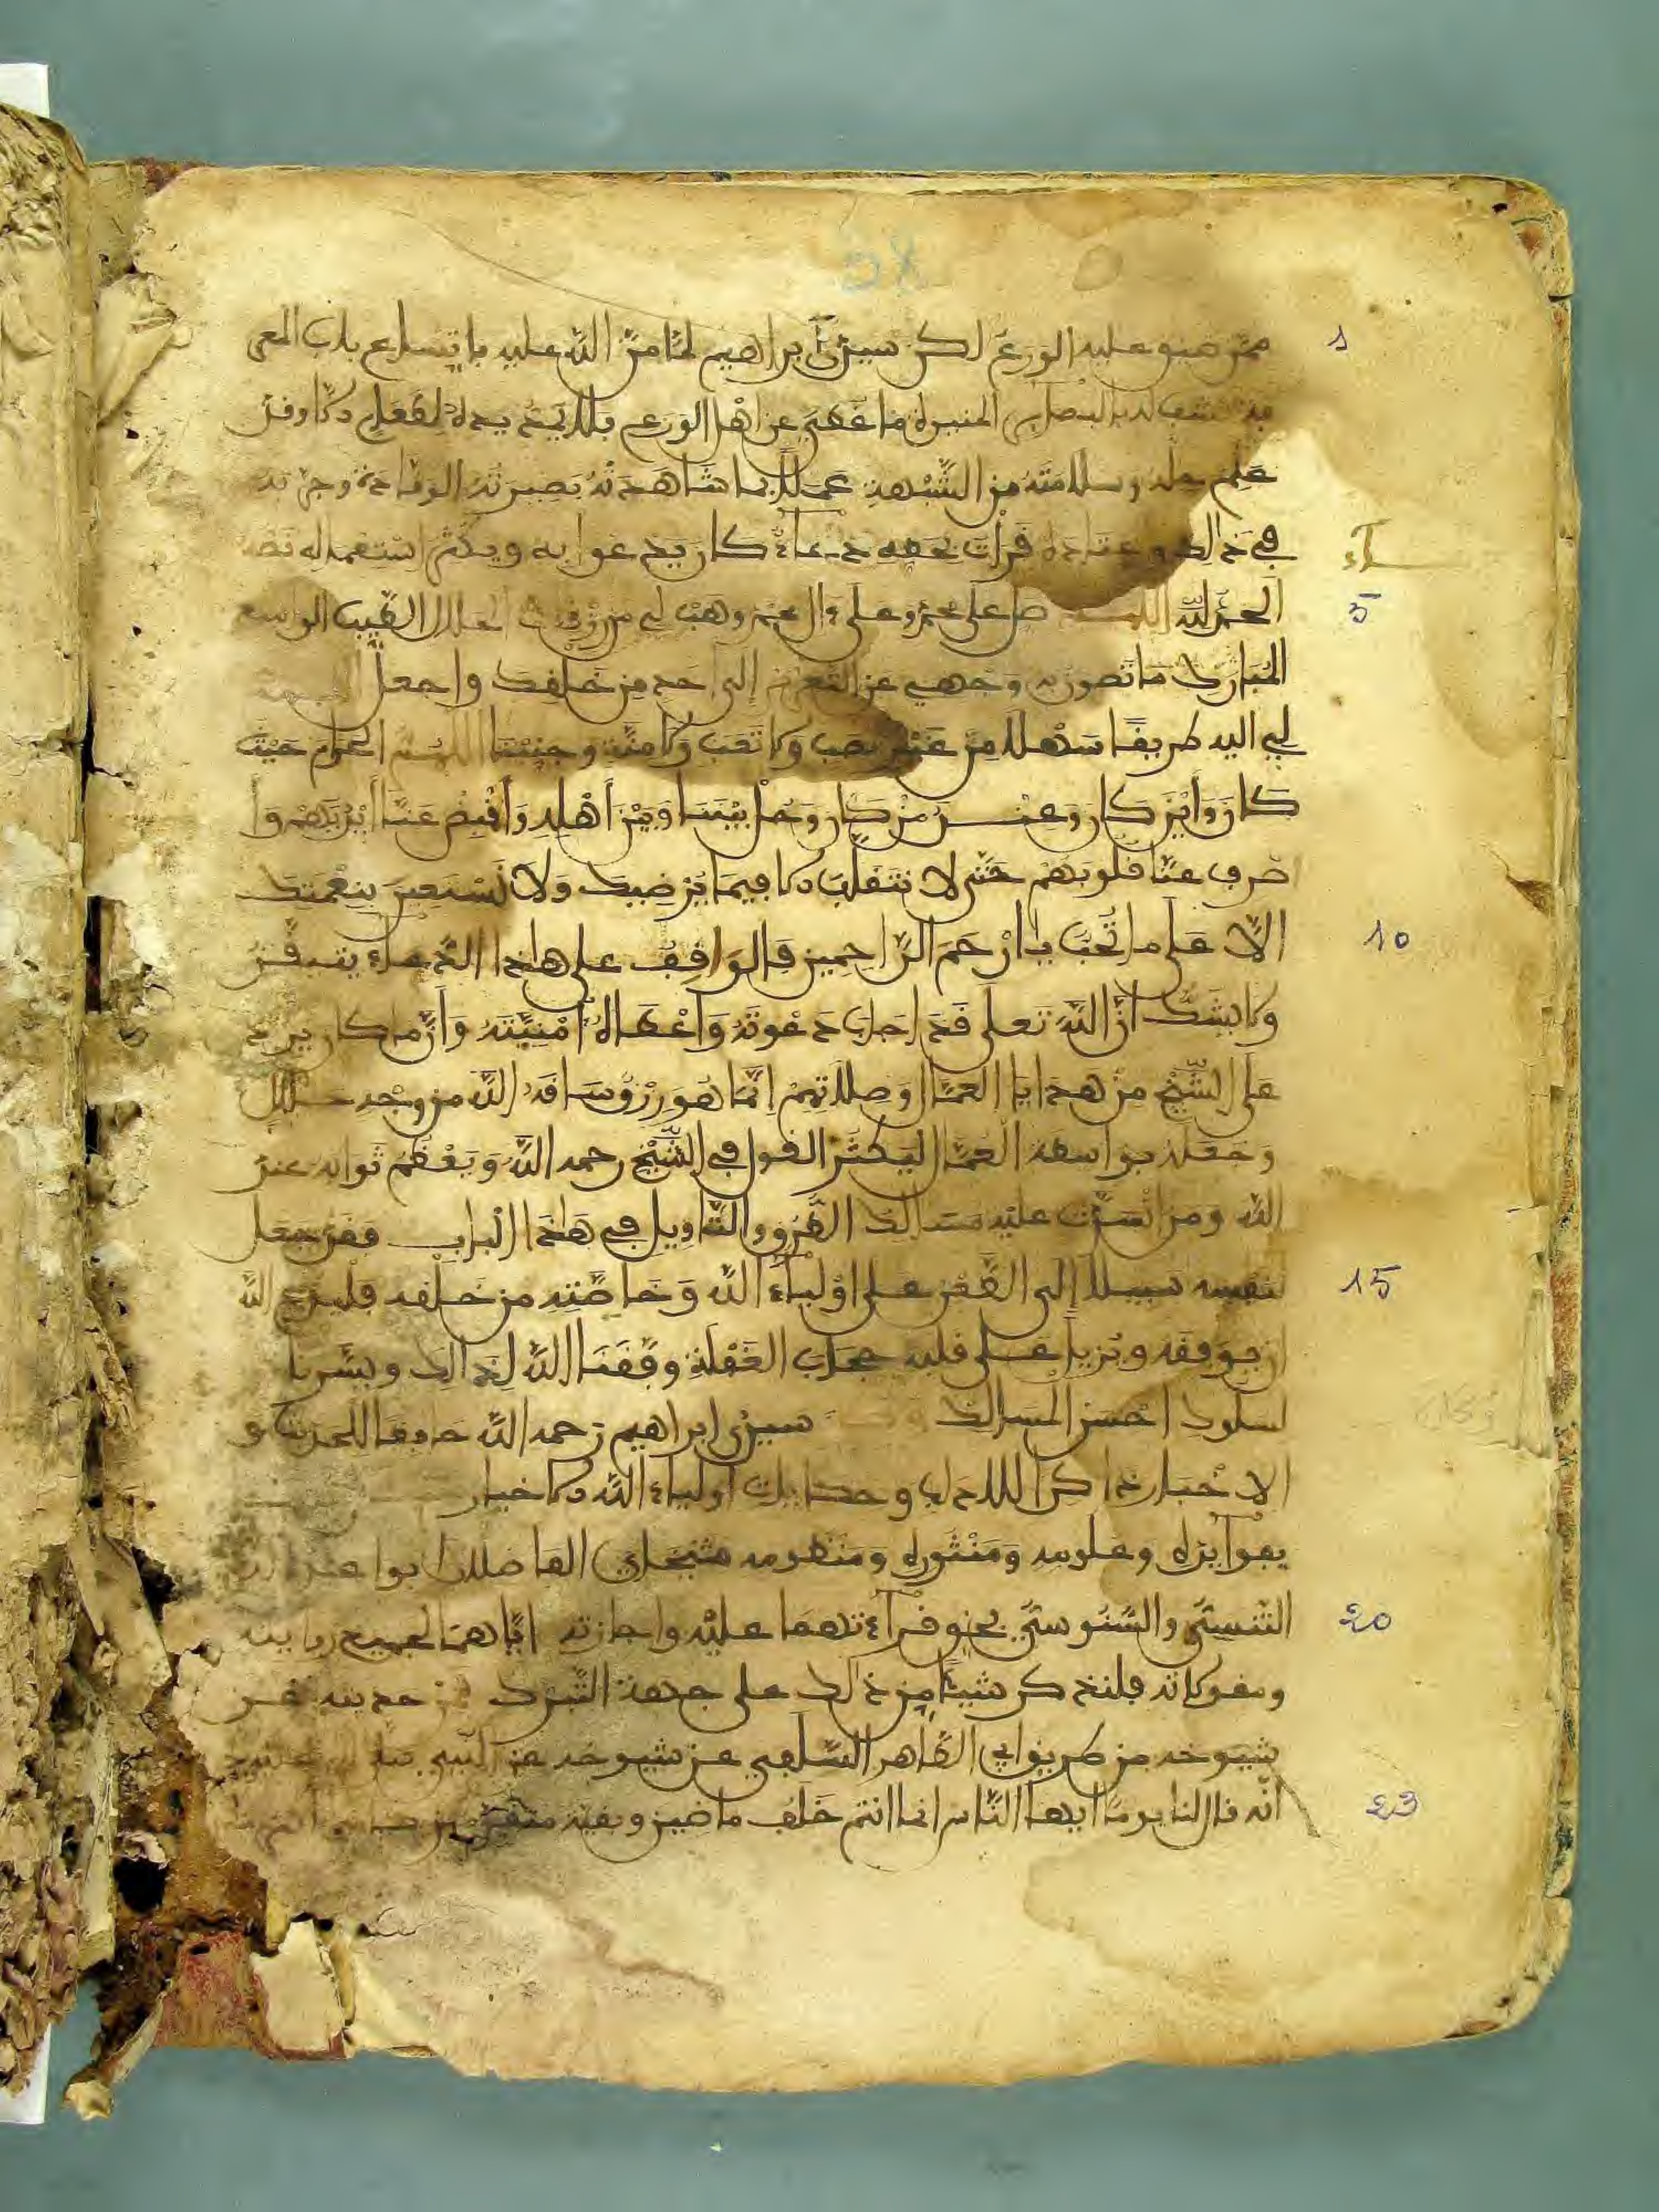 ممن ضيق عليه الورع لكن سيدي ابراهيم لمّا منّ الله عليه باتساع باب المعر
المنيرة ما غطي عن اهل الورع فلا يمد يده لفعل ذلك وقد
علم حله وسلامته من الشبهة عملا بما شاهدته بصيرته الوقادة وجرّبه
في ذالك وعتاده قرات بخطه دعاء كان يدعوا به ويكثر استعماله نصه
الحمد لله اللهم صل على محمد وعلى ءال محمد وهب لي من رزقك الحلال الطيب الواسع
المبارك ما تصون به وجهي عن التعرض إلى احد من خلقك واجعل
لي اليه طريقا سهلا من غير نصب ولا تعب ولا منّة وجنبنا اللهم الحرام حيث
كان وأين كان وعند من كان وحل بيننا وبين أهله وأقبض عنا أيديهم وا
صرف عنّا قلوبهم حتى لا نتقلب الا فيما يرضيك ولا نستعين بنعمتك
الا على ما تحب يا أرحم الراحمين فالواقف على هاذا الدعاء يتيقن
ولا يشك أنّ الله تعلى قد اجاب دعوته وأعطاه أمنيّته وأنّ ما كان يرد
على الشّيخ من هدايا العمّال وصلاتهم إنّما هو رزق ساقه الله من وجه حلال
وجعله بواسطة العمّال ليكثر القول في الشّيخ رحمه الله ويعظم ثوابه عند
الله ومن انسدّت عليه مسالك الطّرق والتّاويل في هاذا الباب فقد جعل
لنفسه سبيلا إلى الطّعن على اولياء الله وخاصّته من خلقه فليدع الله
ان يوفقه ويزيل على قلبه حجاب الغفلة وفّقنا الله لذالك ويسّرنا
لسلوك احسن المسالك سيدي ابراهيم رحمه الله حافظا للحديث و
الاخبار ذاكرا للاداب وحكايات اولياء الله الاخيار
بفوائده وعلومه ومنثوره ومنظومه شيخاي الفاضلان ابوا عبد الله
التنسيّ والسّنوسيّ بحق قراءتهما عليه واجازته ايّاهما لجميع رواياته
ومقولاته فلنذكر شيئا من ذالك على جهة التبرك فمن حديثه عن
شيوخه من طريق ابي الطّاهر السّلفي عن شيوخه عن النّبي صلى الله عليه
انّه قال لنا يوما ايها النّاس انما انتم خلف ماضين وبقية متقدمين
1
5
10
15
20
23